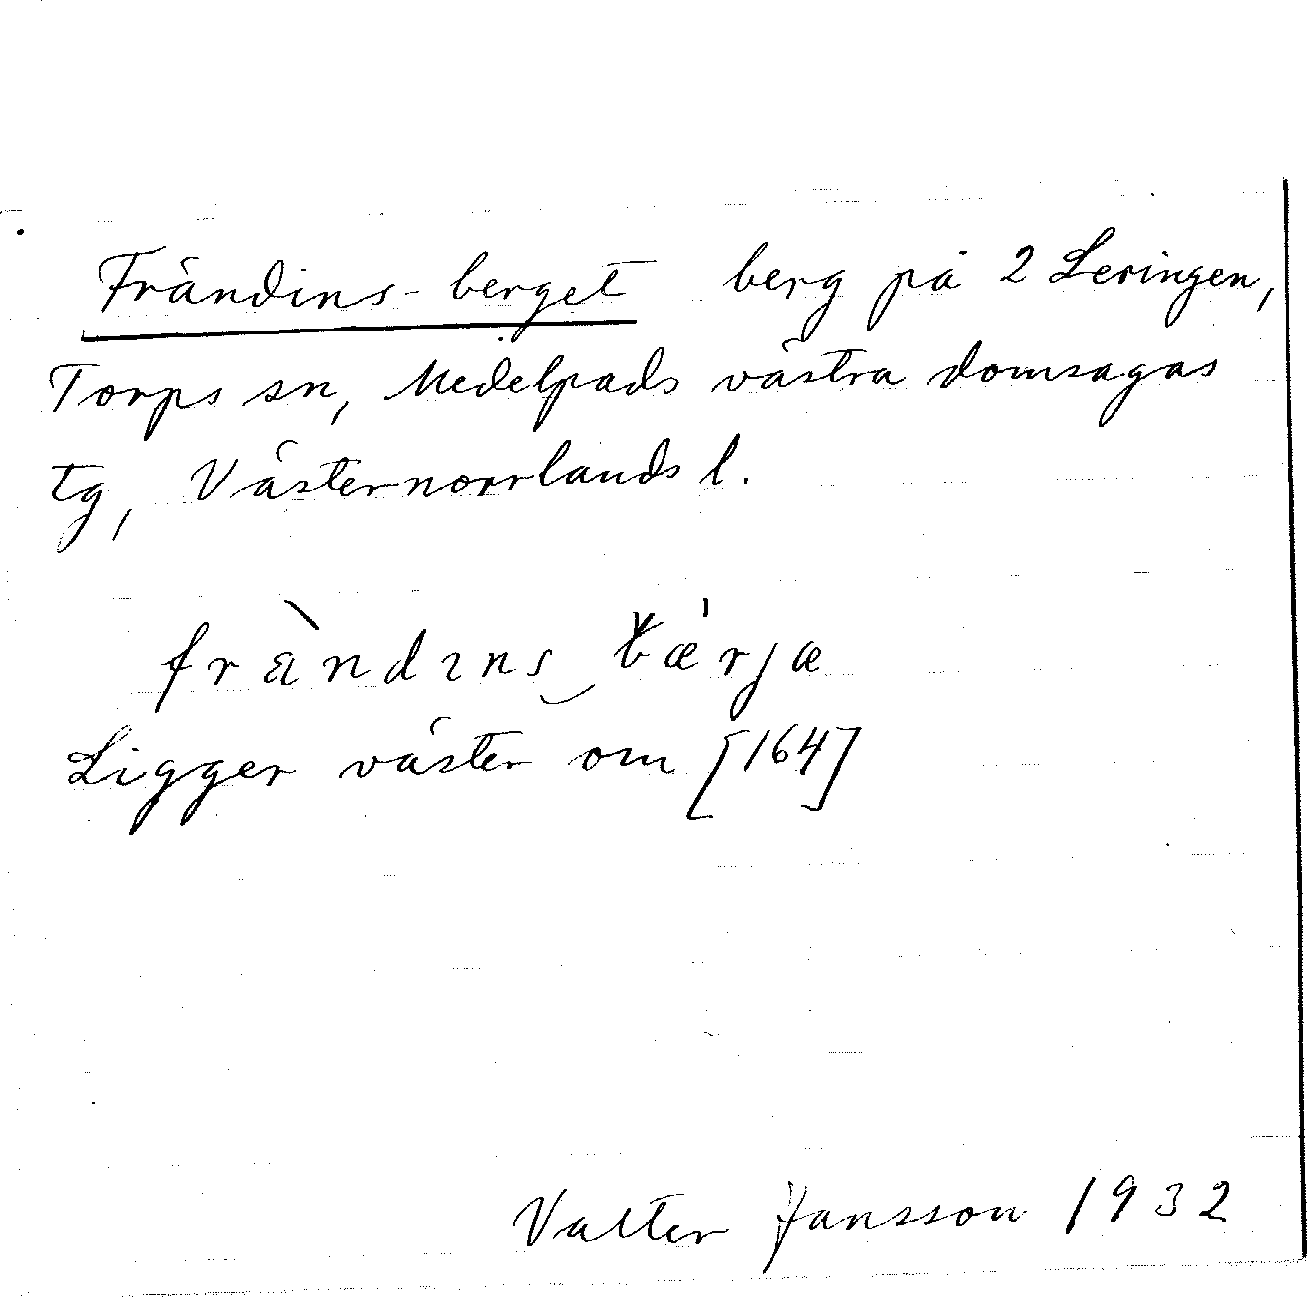 Frändins-berget berg på 2 Leringen,
Torps sn, Medelpads västra domsagas
tg, Västernorrlands l.
fräǹdıns‿bæ'rjæ
Ligger väster om [164]
Valter Jansson 1932